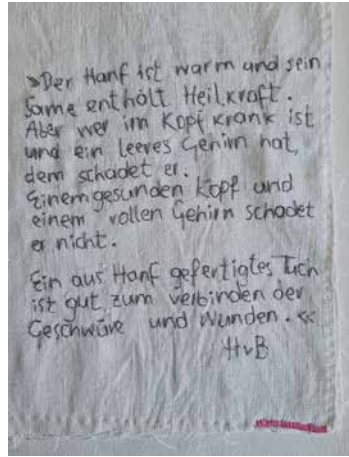 »Der Hanf ist warm und sein
Same enthält Heilkraft.
Aber wer im Kopf krank ist
und ein leeres Gehirn hat,
dem schadet er.
Einem gesunden Kopf und
einem vollen Gehirn schadet
er nicht.
Ein aus Hanf gefertigtes Tuch
ist gut zum verbinden der
Geschwüre und Wunden.«
HvB